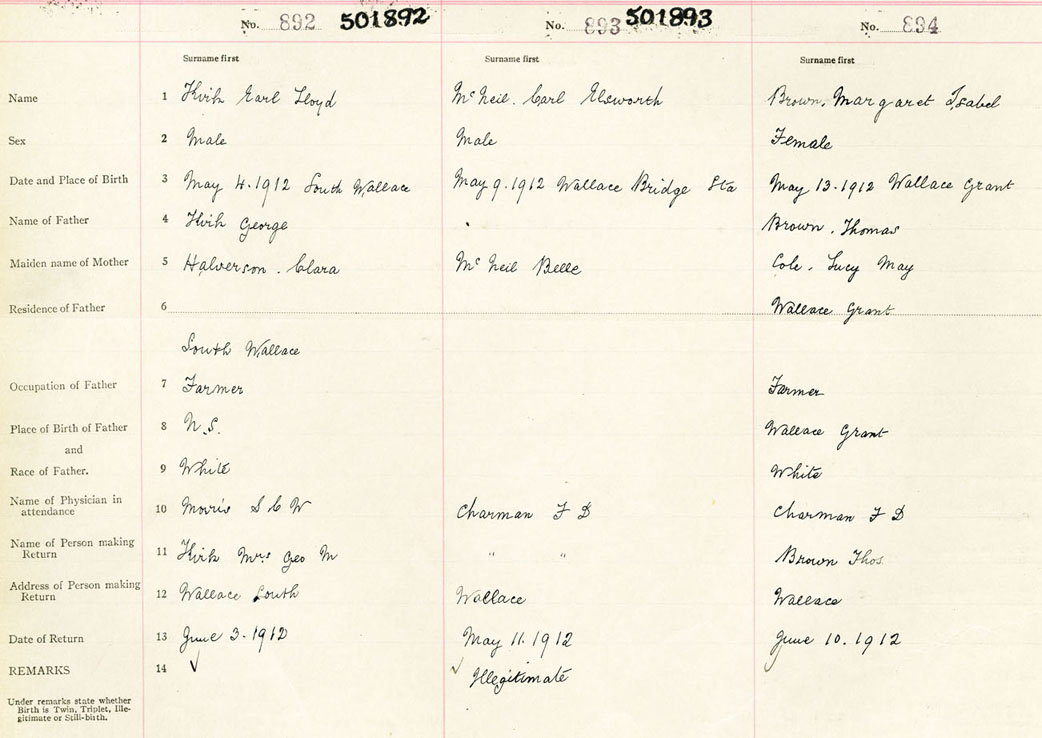 No. 892 501892 No. 893 501893 No. 894
Surname first Surname first Surname first
Name 1 Kirk Earl Lloyd McNeil. Carl Elsworth Brown, Margaret Isabel
Sex 2 Male Male Female
Date and Place of Birth 3 May 4. 1912 South Wallace May 9. 1912 Wallace Bridge Sta May 13. 1912 Wallace Grant
Name of Father 4 Kirk George Brown. Thomas
Maiden name of Mother 5 Halverson. Clara McNeil Belle Cole. Lucy May
Residence of Father 6 Wallace Grant
South Wallace
Occupation of Father 7 Farmer Farmer
Place of Birth of Father 8 N.S. Wallace Grant
and
Race of Father. 9 White White
Name of Physician in
attendance 10 Morris S C W Charman F D Charman F D
Name of Person making
Return 11 Kirk Mrs Geo M " " Brown Thos.
Address of Person making
Return 12 Wallace South Wallace Wallace
Date of Return 13 June 3. 1912 May 11. 1912 June 10. 1912
REMARKS 14 ✓ ✓ Illegitimate
Under remarks state whether
Birth is Twin, Triplet, Ille-
gitimate or Still-birth.